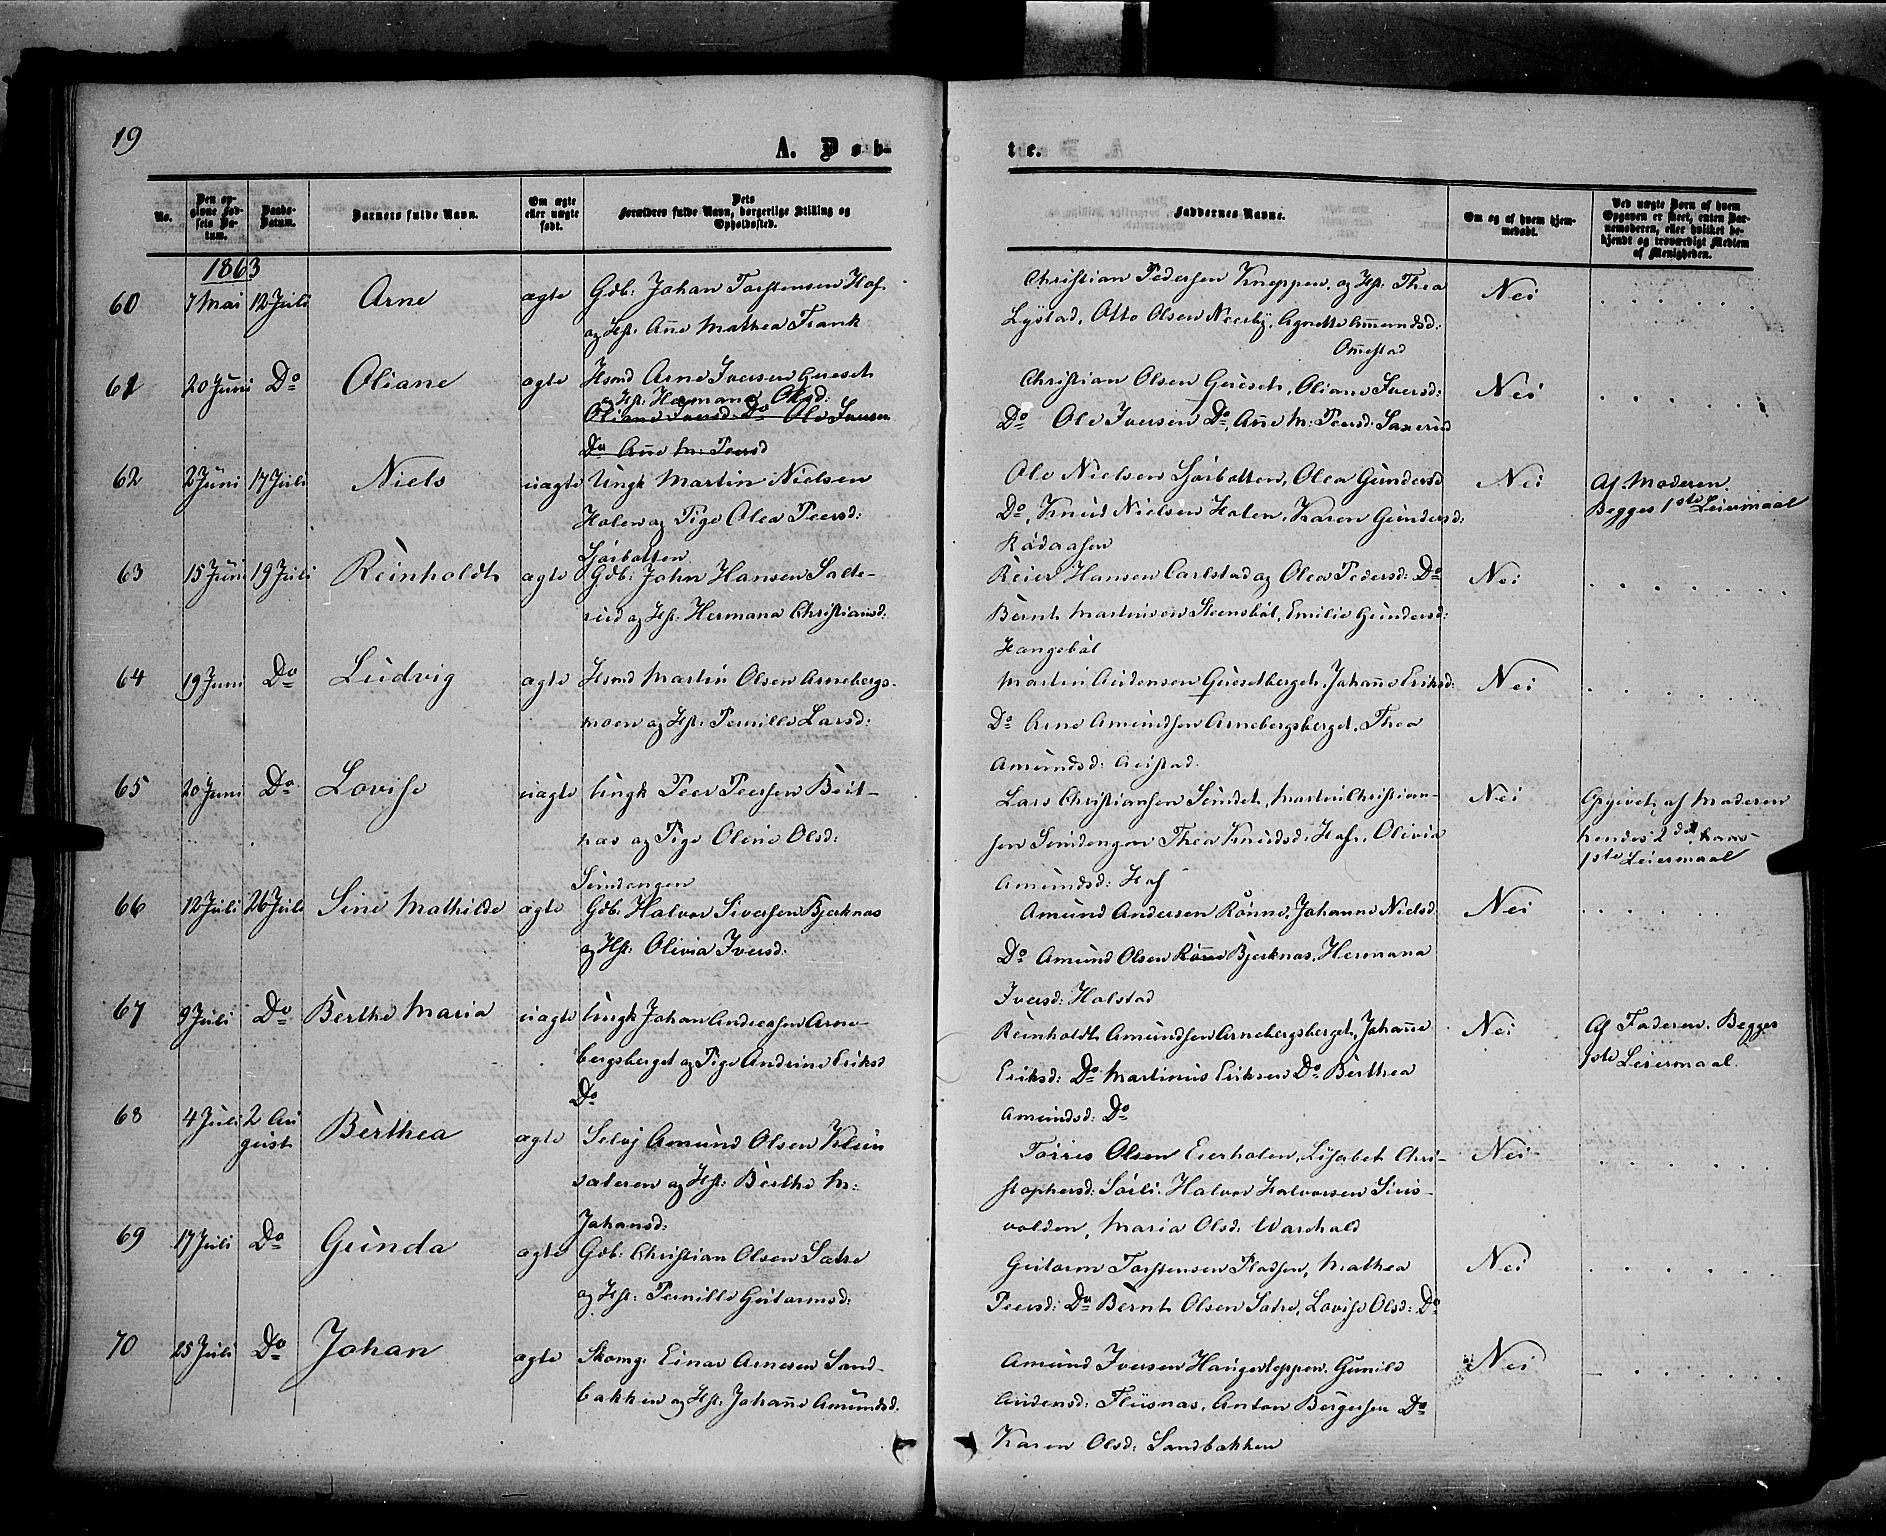 19
A. Døb-
te.
No.
Den op-
givne Fød-
sels Da-
tum.
Daabs-
Datum.
Barnets fulde Navn.
Om ægte
eller uægte
født.
Dets
Forældres fulde Navn, borgerlige Stilling og
Opholdssted.
Faddernes Navne.
Om og af hvem hjem-
medøbt.
Ved uægte Børn af hvem
Opgaven er skeet, enten Bar-
nemoderen, eller hvilket be-
kjendt og troværdigt Medlem
af Menigheden.
1863
60 7 Mai 12 Juli Arne ægte Gdb: Johan Torstensen Hof
og Hst: Anne Mathea Frank
Christian Pedersen Kneppen, og Hst: Thea
Lystad, Otto Olsen Neerby, Agnethe Amundsd:
Omestad
Nei
61 20 Juni Do Oliane ægte Hsmd Arne Iversen Gueset
og Hst: Hermana Olsd:
Oliane Iversd: Do Ole Iversen
Do Anne M: Peersd
Christian Olsen Gueset, Oliane Iversd:
Do Ole Iversen Do, Anne M: Peersd: Saxerud
Nei
62 2 Juni 17 Juli Niels uægte Ungk Martin Nielsen
Holen og Pige Olea Peersd:
Sjørbotten
Ole Nielsen Sjørbotten, Olea Gundersd
Do, Knud Nielsen Holen, Karen Gundersd:
Rødaasen
Nei
Af Moderen.
Begges 1ste Leiermaal
63 15 Juni 19 Juli Reinholdt ægte Gdb: John Hansen Salte-
rud og Hst: Hermana Christiansd:
Reier Hansen Carlstad og Olea Pedersd: Do
Bernt Martinsen Steensbøl, Emilie Gundersd:
Hangebøl
Nei
64 19 Juni Do Ludvig ægte Hsmd Martin Olsen Arnebergs-
moen og Hst: Pernille Larsd:
Martin Audensen Guesetberget, Johanne Eriksd:
Do Arne Amundsen Arnebergsberget, Thea
Amundsd: Austad
Nei
65 20 Juni Do Lovise uægte Ungk Peer Peersen Beit-
næs og Pige Oline Olsd:
Sundengen
Lars Christiansen Sundet, Martin Christian-
sen Sundengen Thea Knudsd: Hof, Olivia
Amundsd: Hof
Nei
Opgivet af Moderen
hendes 2det, hans
1ste Leiermaal
66 12 Juli 26 Juli Sine Mathilde ægte Gdb: Halvor Siversen Bjerknæs
og Hst: Olivia Iversd:
Amund Andersen Rønne, Johanne Nielsd
Do Amund Olsen Rønne Bjerknæs, Hermana
Iversd: Holstad
Nei
67 9 Juli Do Berthe Maria uægte Ungk Johan Andreasen Arne-
bergsberget og Pige Andrine Eriksd
Do
Reinholdt Amundsen Arnebergsberget, Johanne
Eriksd: Do Martinus Eriksen Do Berthea
Amundsd: Do
Nei
Af Faderen. Begges
1ste Leiermaal.
68 4 Juli 2 Au
gust
Berthea ægte Selvej Amund Olsen Klein
sæteren og Hst: Berthe M:
Johansd:
Torris Olsen Eierholen, Lisabet Chri-
stophersd: Sørli. Halvor Halvorsen Siris-
volden, Maria Olsd: Warhold
Nei
69 17 Juli Do Gunda ægte Gdb: Christian Olsen Sætre
og Hst: Pernille Gutormsd:
Gutorm Torstensen Pladsen, Mathea
Peersd: Do Bernt Olsen Sætre, Lovise Olsd: Do
Nei
70 25 Juli Do Johan ægte Skomg: Einar Arnesen Sand-
bakken og Hst: Johanne Amundsd.
Amund Iversen Haugertoppen. Gunild
Audensd: Flisnæs, Anton Børgersen Do
Karen Olsd: Sandbakken
Nei